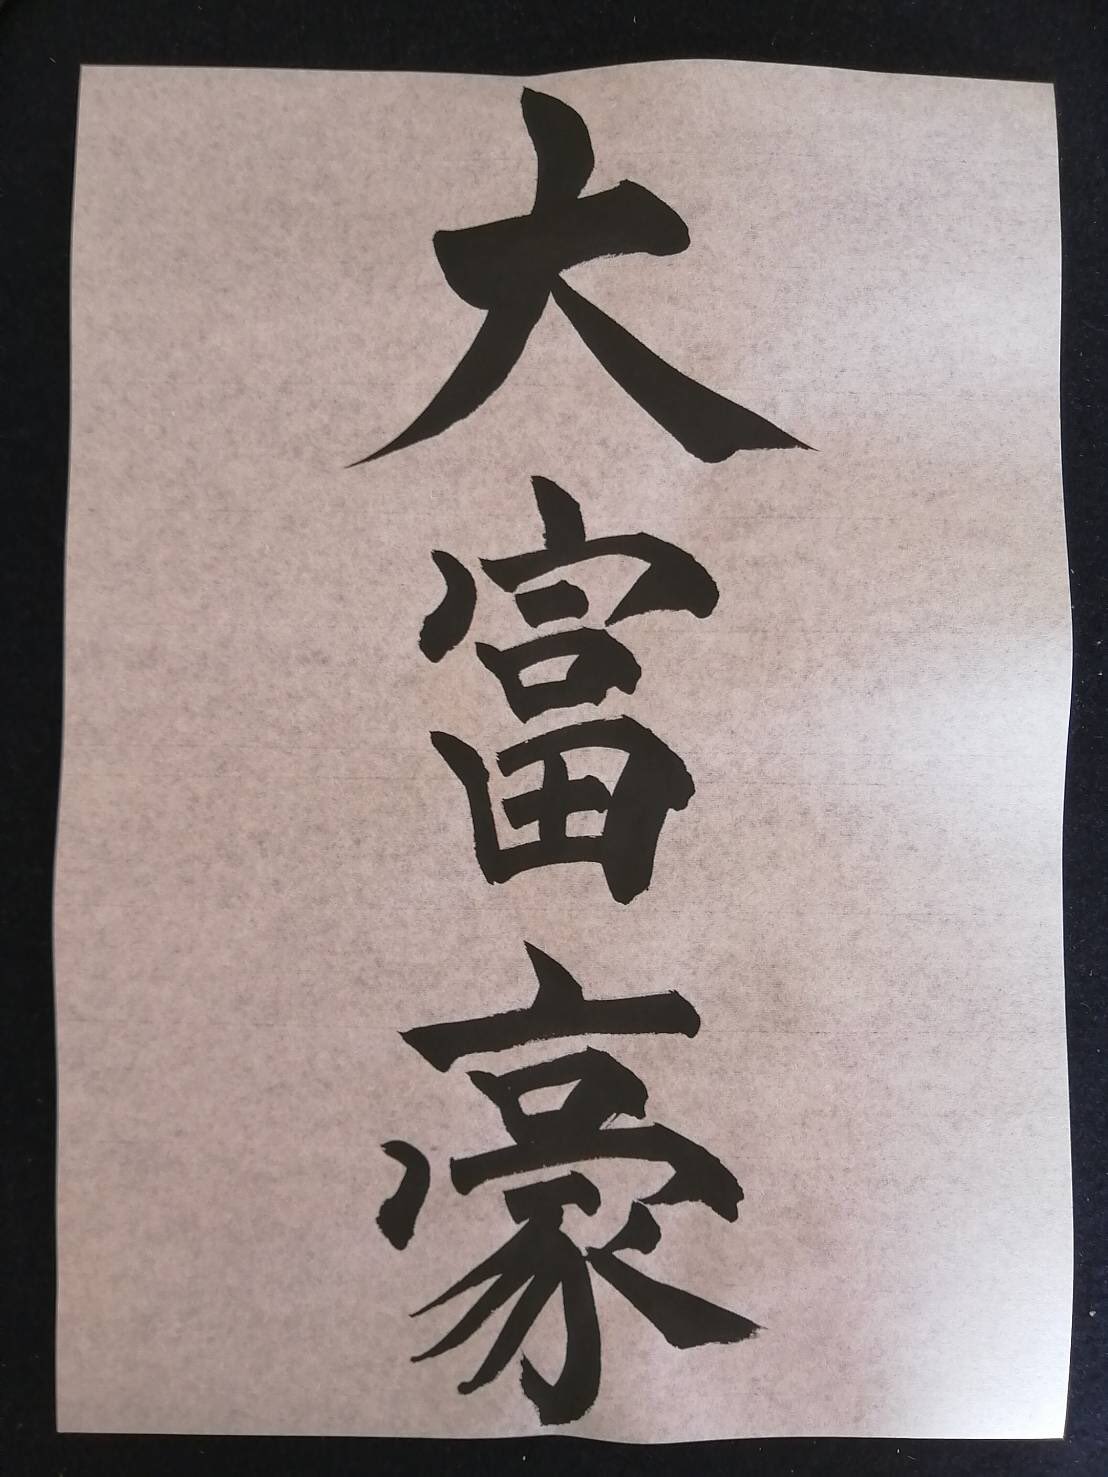 大富豪